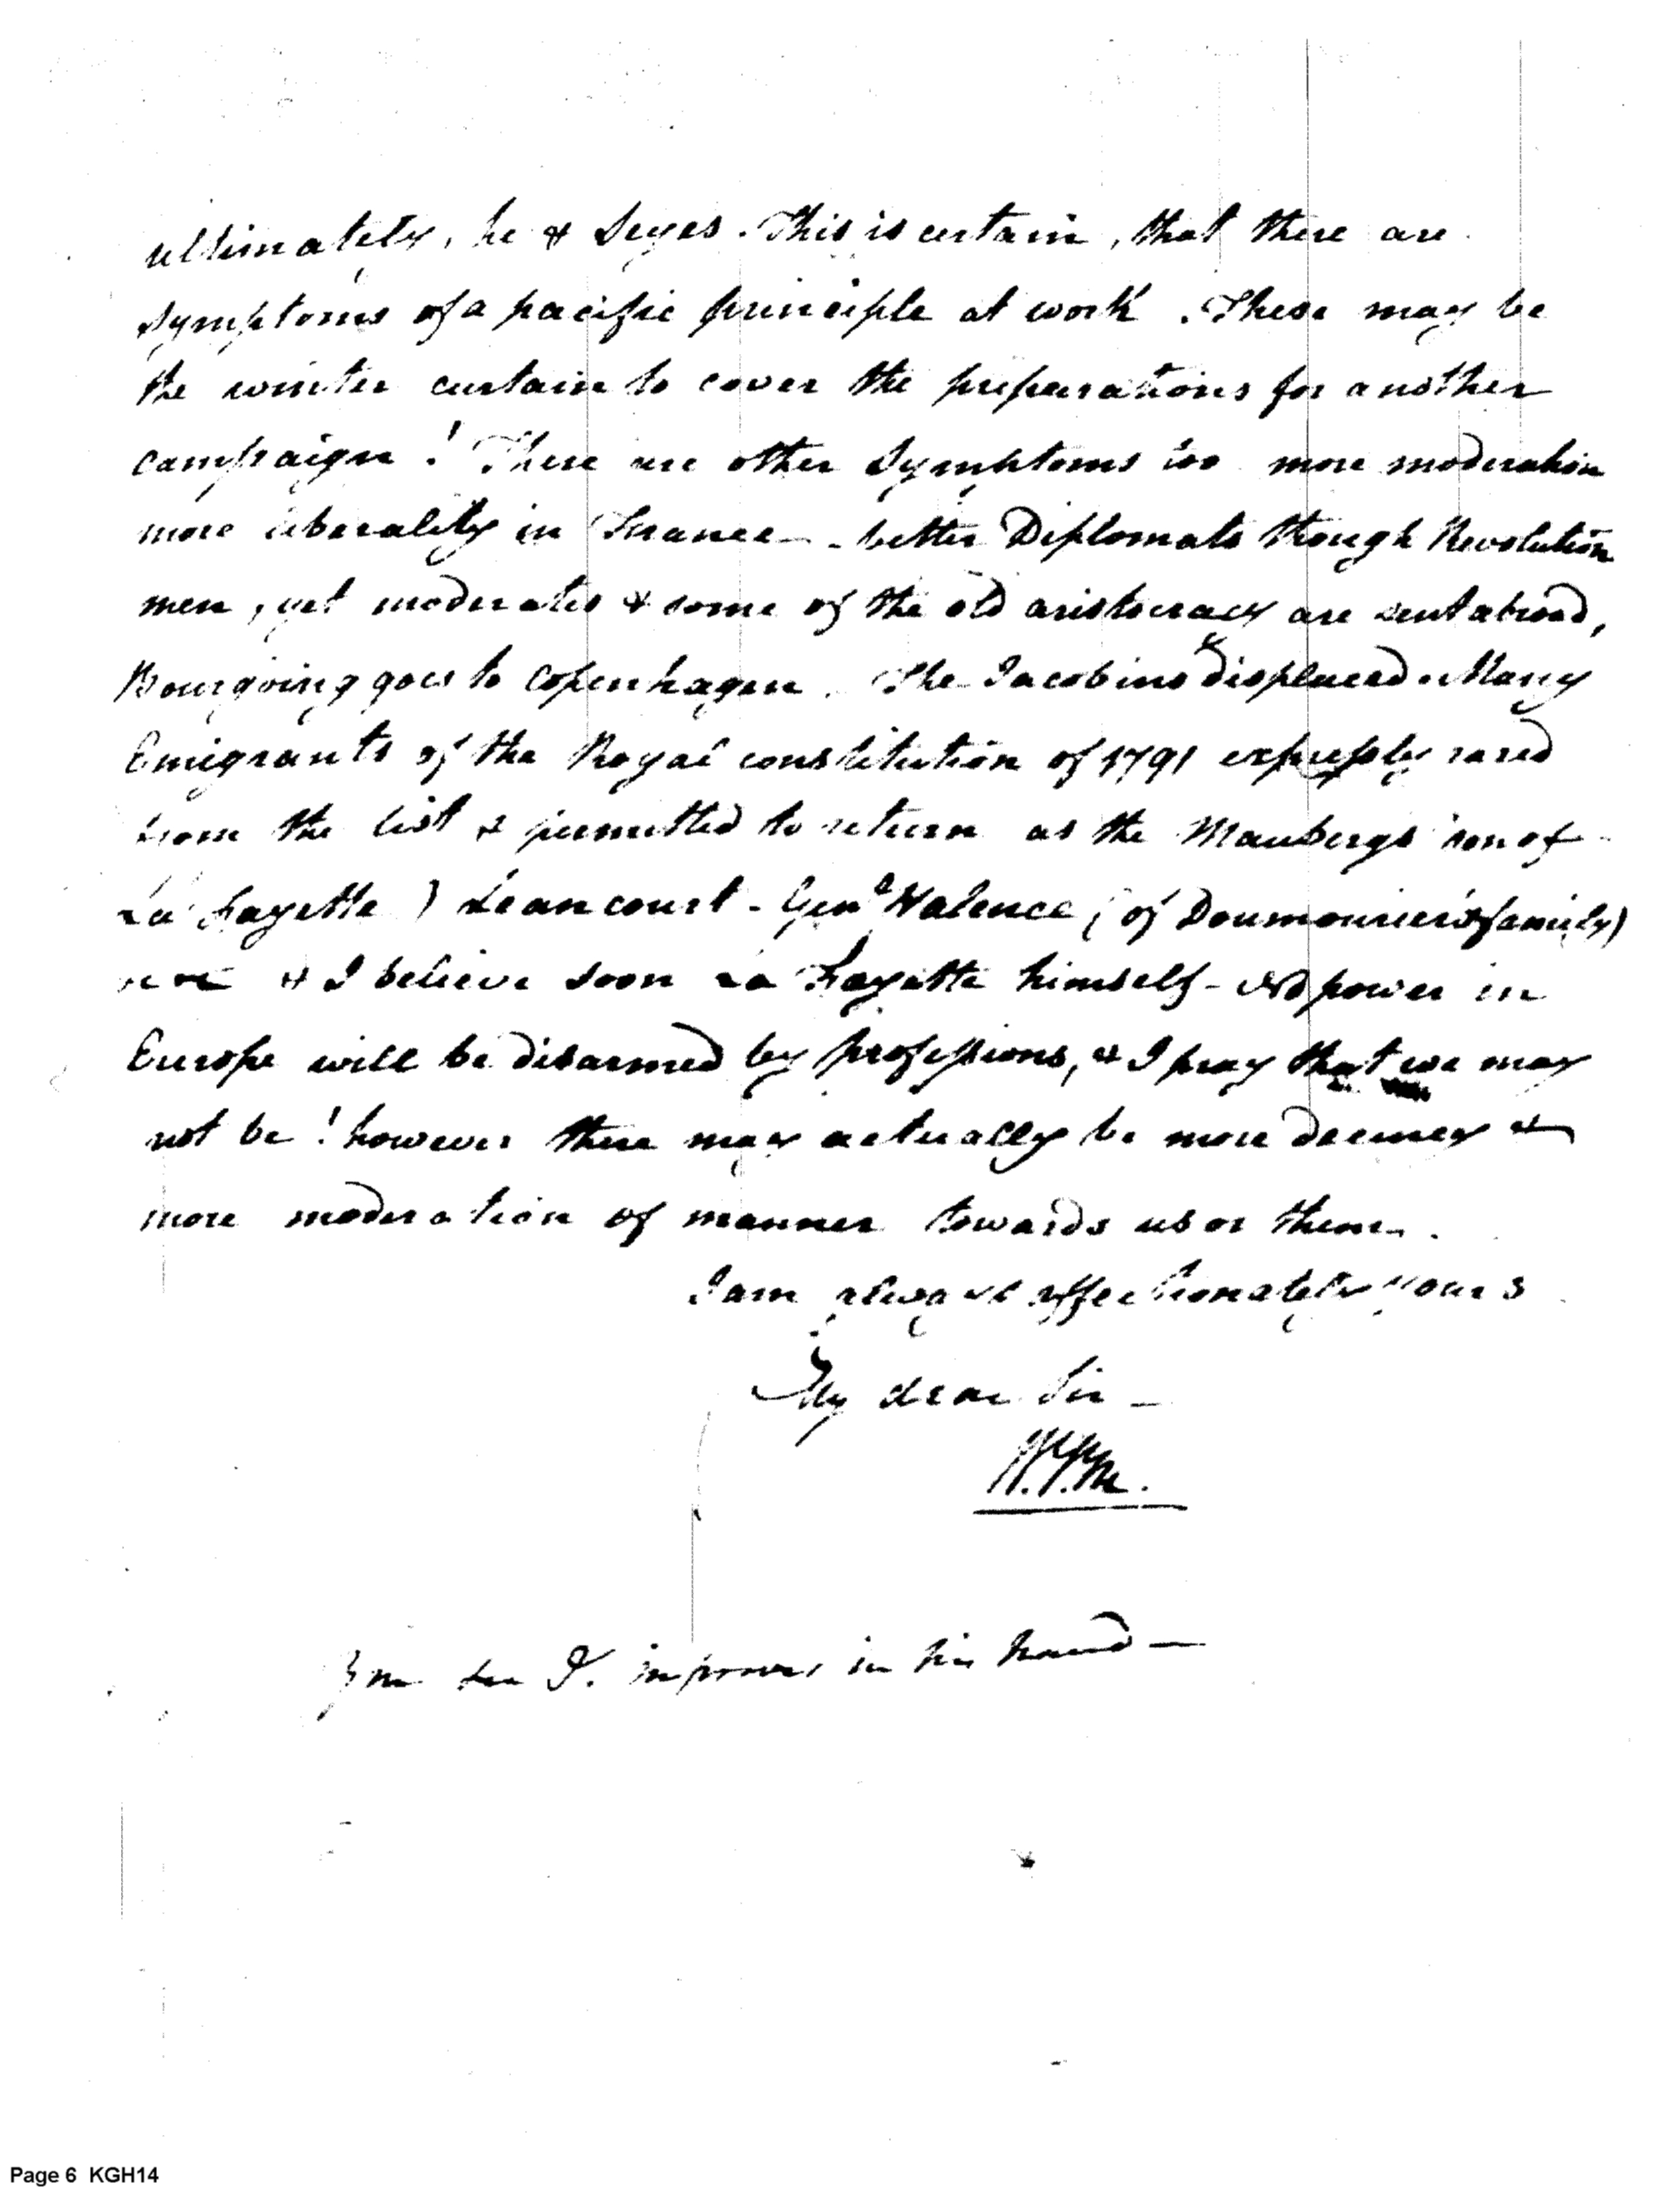 ultimately, he & Seyes. This is certain, that there are
symptoms of a pacific principle at work. These may be
the winter curtain to cover the preparations for another
campaign! There are other symptoms too more moderation
more liberality in France - better Diplomats though Revolution
men, yet moderates & some of the old aristocracy are sent abroad,
Bourgoing goes to Copenhagen. The Jacobins displaced. Many
Emigrants of the Royal constitution of 1791 expressly rased
from the list & permitted to return as the Maubergs son of
La Fayette) Leancourt - Genl Valence (of Doumourier's family)
&c & I believe soon La Fayette himself - power in
Europe will be disarmed by professions, & I pray that we may
not be! however there may actually be more decency &
more moderation of manner towards us or them.
I am always affectionately yours
My dear Sir -
W.V.M.
you see T. improves in his hand -
Page 6 KGH14